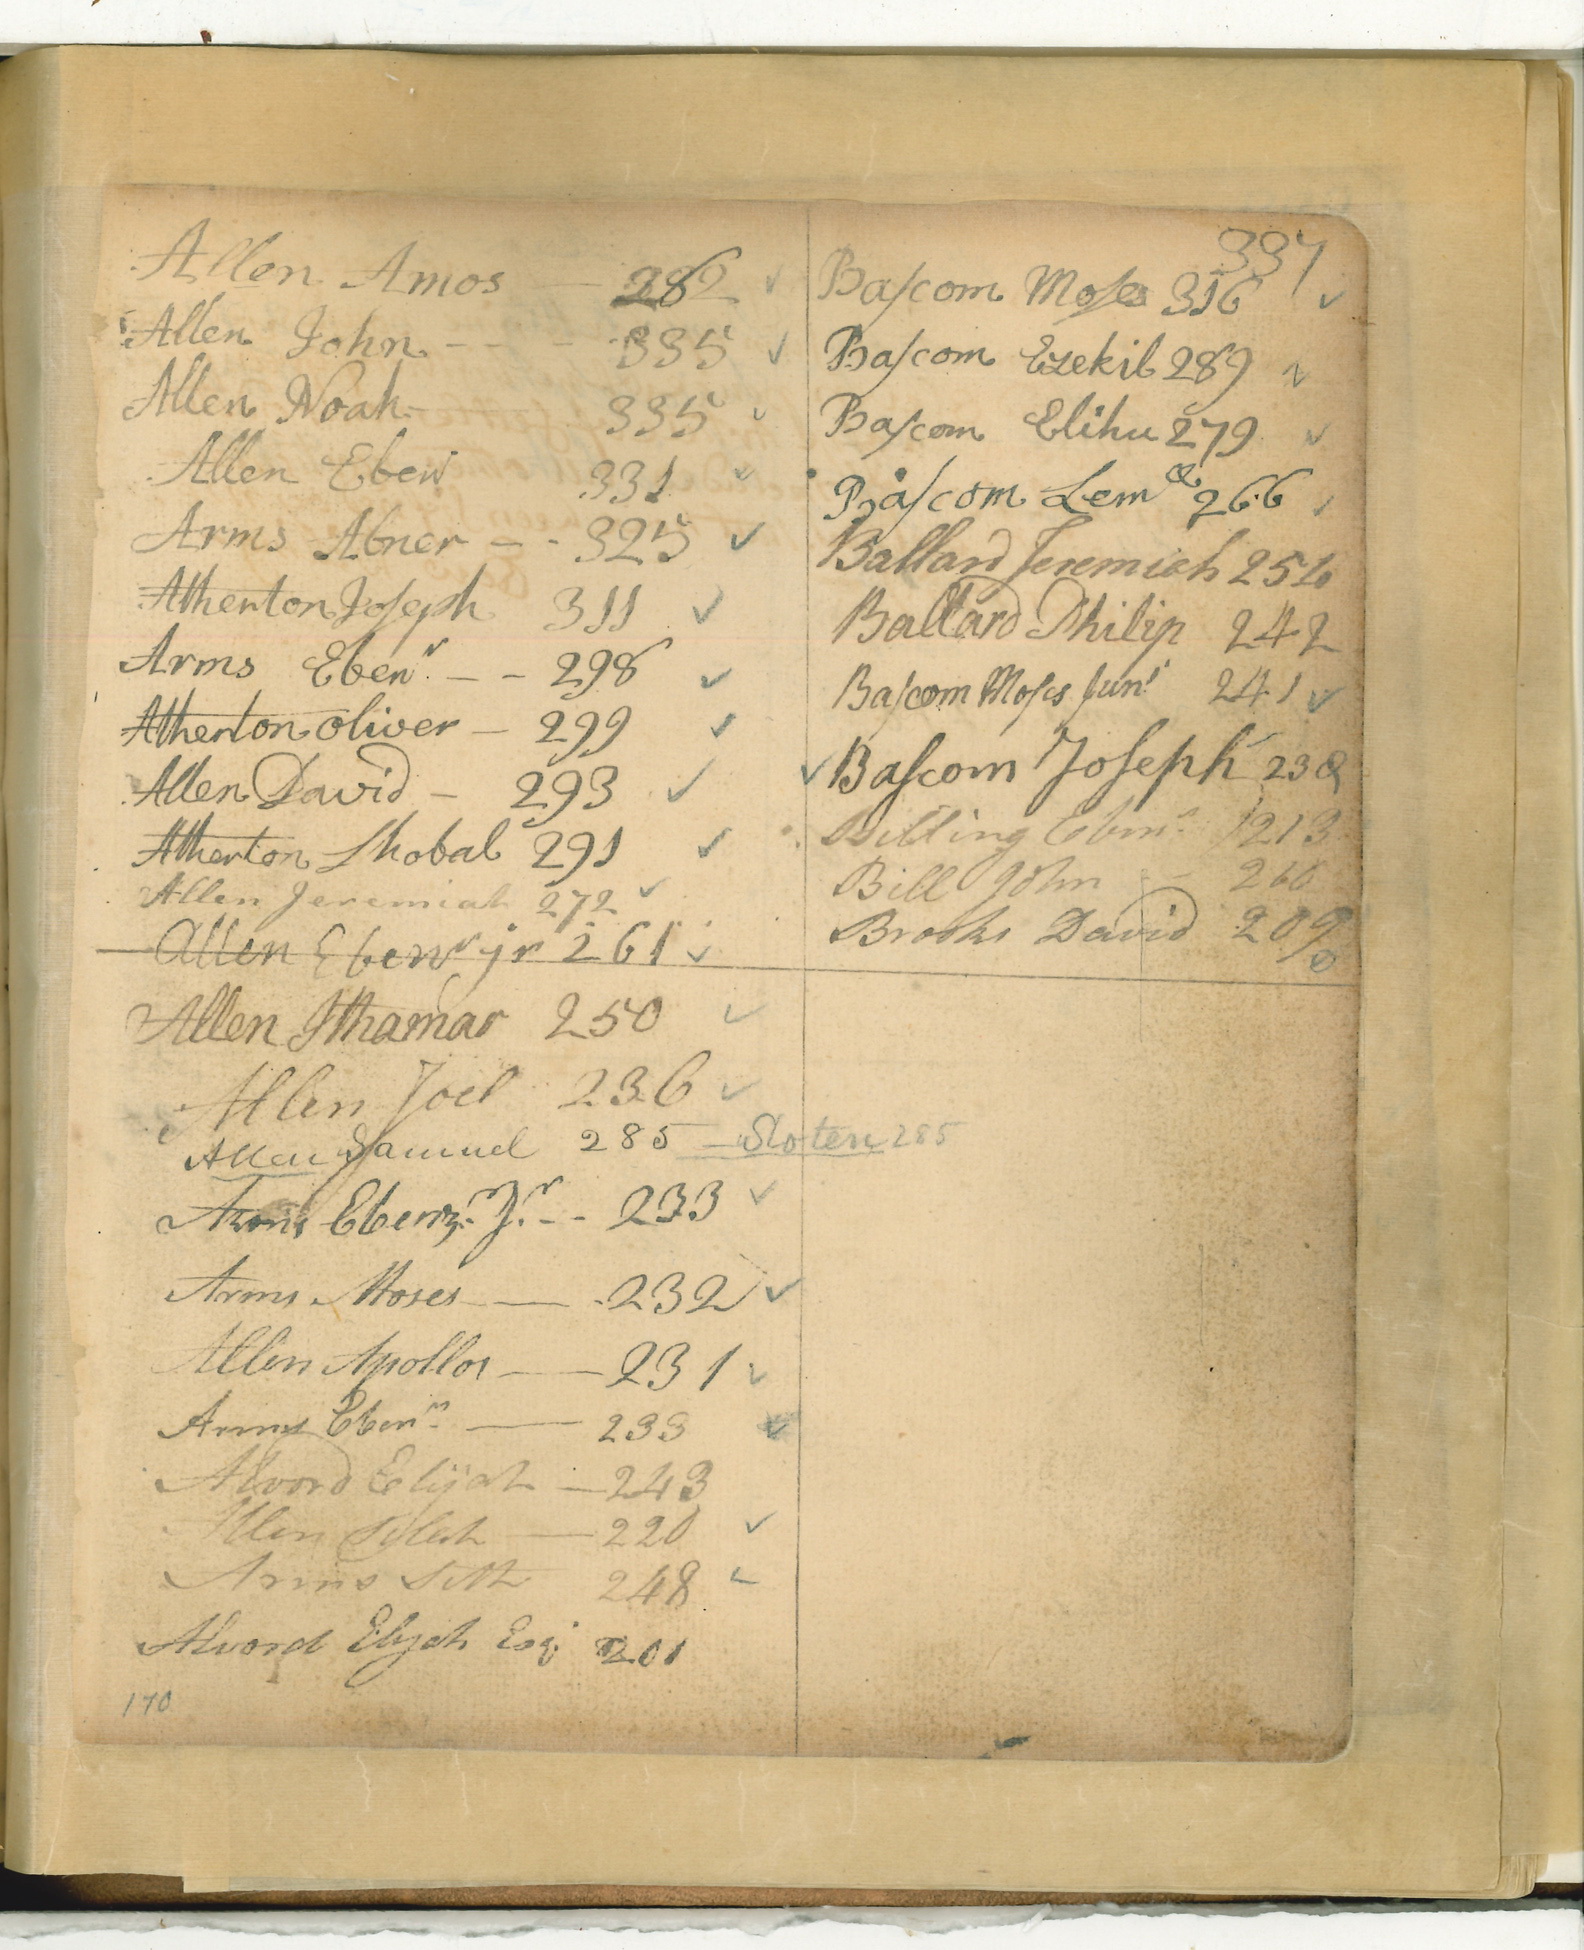 Allen Amos — 282
Allen John - - - 335
Allen Noah 335
Allen Eben 331
Arms Abner - - 325
Atherton Joseph 311
Arms Ebenr. - - 298
Atherton oliver - 299
Allen David - 293
Atherton Shobal 291
Allen Jeremiah 272
Allen Ebenr jr 261
Allen Ithamar 250
Allen Joel 236
Allen Samuel 285 — Sloten 285
Arms Ebenzr. Jr. - - 233
Arms Moses — 232
Allen Apollos — 231
Arms Ebenr — 233
Alvord Elijah — 243
Allen — 220
Arms Seth 248
Alvord Elijah Esq 201
170
337
Baſcom Moſes 316
Baſcom Ezekil 289
Baſcom Elihu 279
Baſcom Lem 266
Ballard Jeremiah 256
Ballard Philip 242
Baſcom Moſes Junr 241
Baſcom Joſeph 238
Billing Ebenr 213
Bill John - 260
Brooks David 209